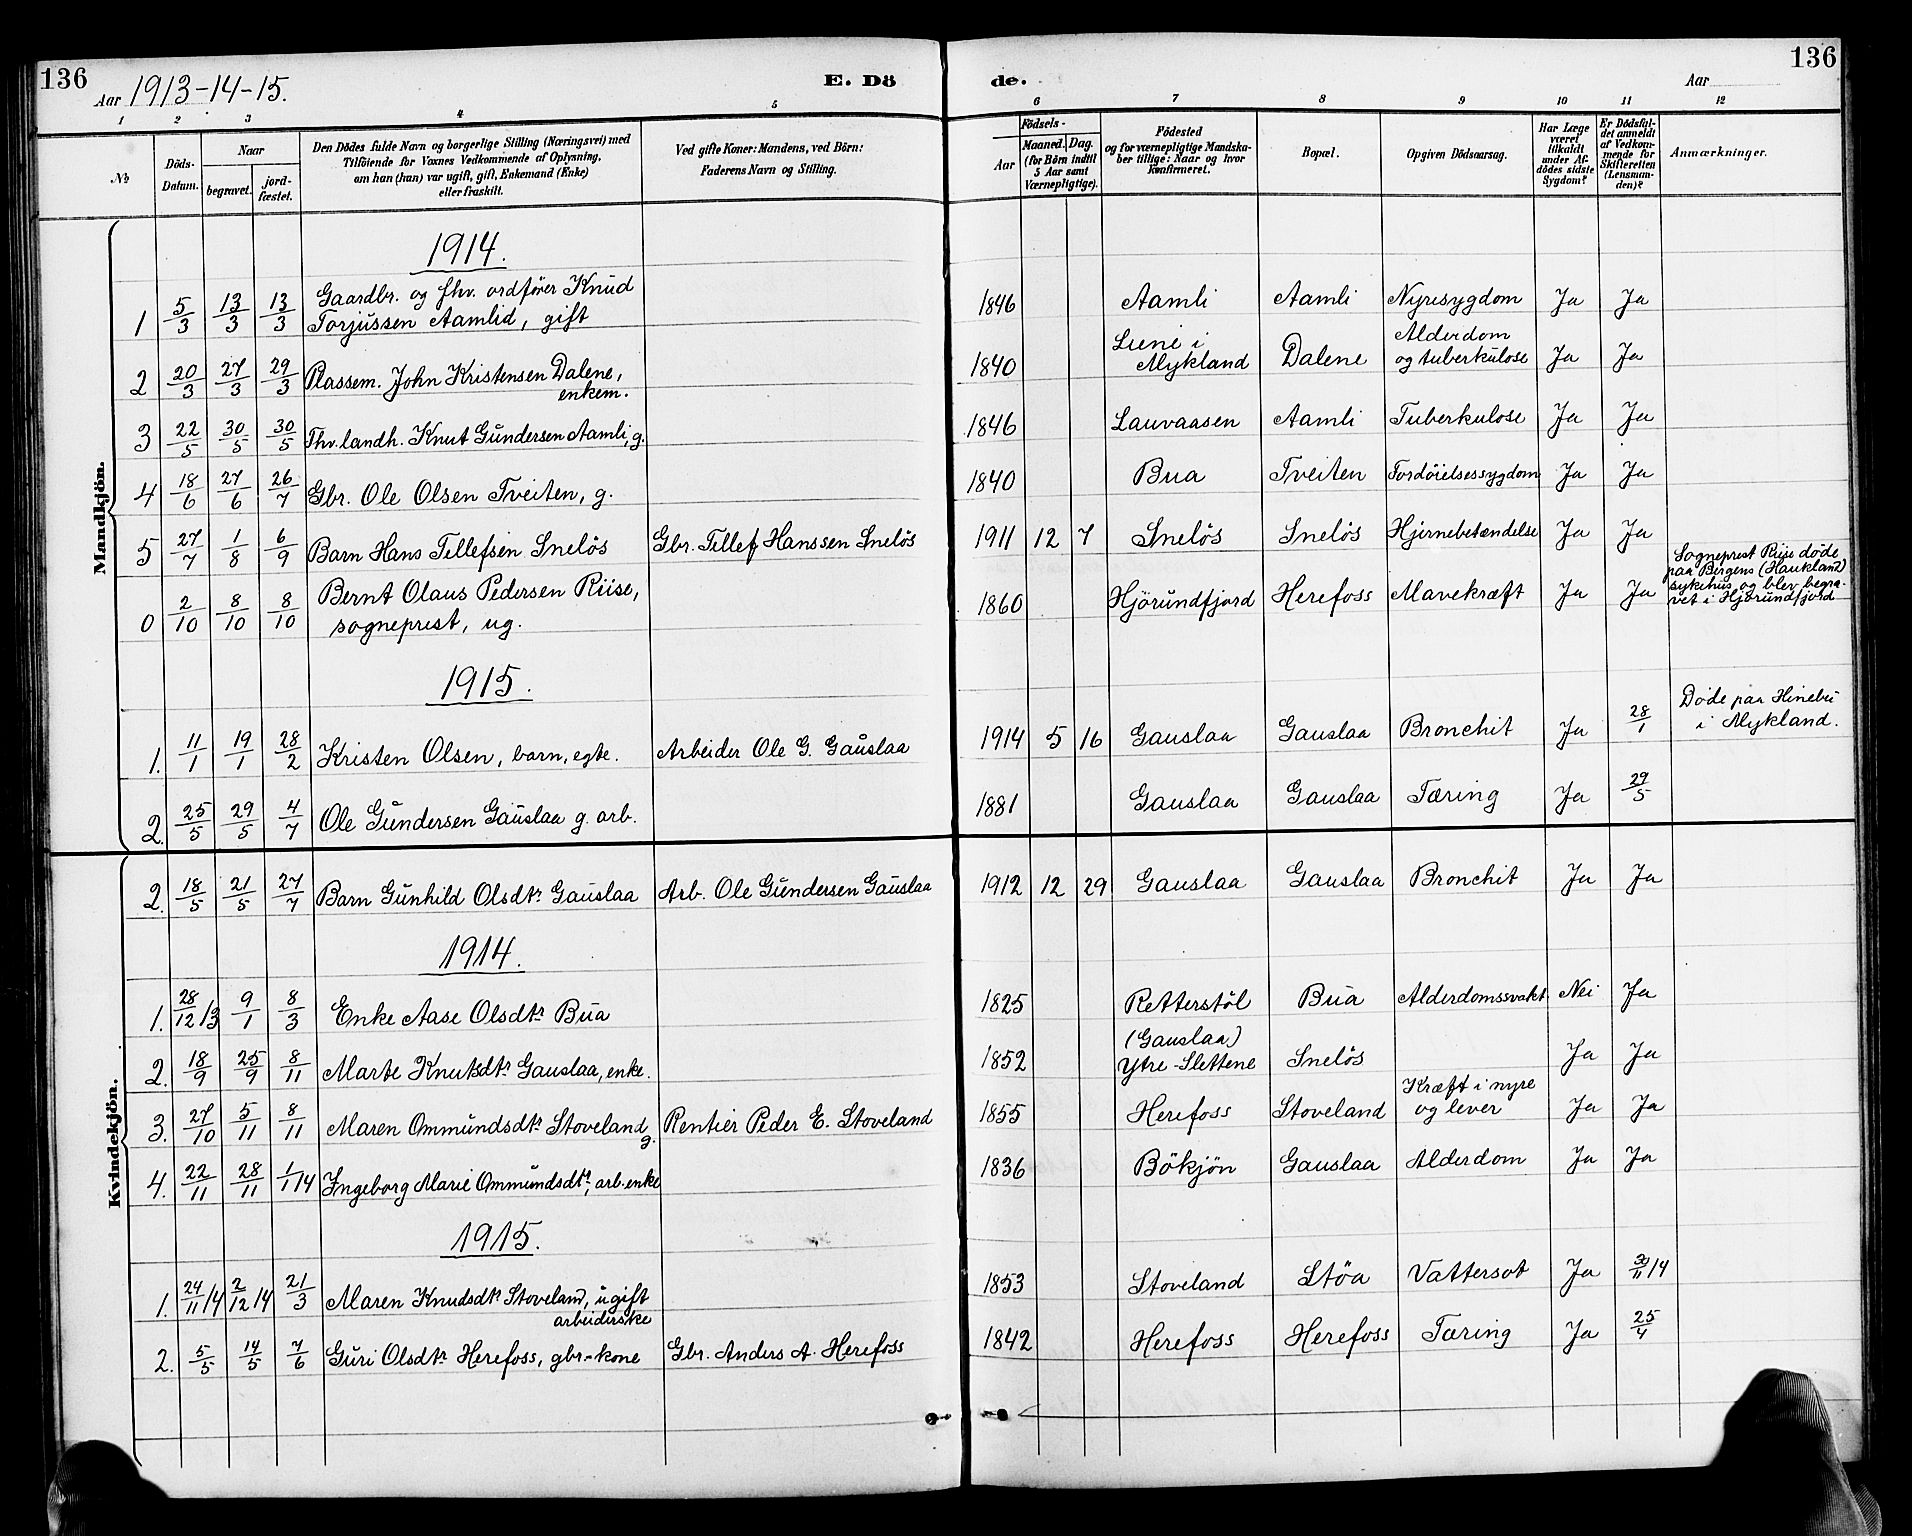 136
Aar 1913-14-15.
E. Dö
de.
Aar
136
1 2 3 4 5 6 7 8 9 10 11 12
№
Döds-
Datum.
Naar
begravet.
jord-
fæstet.
Den Dödes fulde Navn og borgerlige Stilling (Næringsvei) med
Tilföiende for Voxnes Vedkommende af Oplysning,
om han (hun) var ugift, gift, Enkemand (Enke)
eller fraskilt.
Ved gifte Koner: Mandens, ved Börn:
Faderens Navn og Stilling.
Födsels-
Aar
Maaned.
Dag.
(for Börn indtil
5 Aar samt
Værnepligtige).
Födested
og for værnepligtige Mandska-
ber tillige: Naar og hvor
konfirmeret.
Bopæl.
Opgiven Dödsaarsag.
Har Læge
været
tilkaldt
under Af-
dödes sidste
Sygdom?
Er Dödsfal-
det anmeldt
af Vedkom-
mende for
Skifteretten
(Lensman-
den)?
Anmærkninger.
Mandkjön.
1914.
1 5/3 13/3 13/3 Gaardbr. og fhv. ordfører Knud
Torjussen Aamlid, gift 1846 Aamli Aamli Nyresygdom Ja Ja
2 20/3 27/3 29/3 Plassem. John Kristensen Dalene,
enkem. 1840 Liene i
Mykland Dalene Alderdom
og tuberkulose Ja Ja
3 22/5 30/5 30/5 Fhv. landh. Knut Gundersen Aamli, g. 1846 Lauvaasen Aamli Tuberkulose Ja Ja
4 18/6 27/6 26/7 Gbr. Ole Olsen Tveiten, g. 1840 Bua Tveiten Fordøielsessygdom Ja Ja
5 27/7 1/8 6/9 Barn Hans Tellefsen Sneløs Gbr. Tellef Hanssen Sneløs 1911 12 7 Sneløs Sneløs Hjernebetændelse Ja Ja
0 2/10 8/10 8/10 Bernt Olaus Pedersen Riise,
sogneprest, ug. 1860 Hjörundfjord Herefoss Mavekræft Ja Ja Sogneprest Riise døde
paa Bergens (Haukland)
sykehus og blev begra-
vet i Hjörundfjord
1915.
1. 11/1 19/1 28/2 Kristen Olsen, barn, egte. Arbeider Ole G. Gauslaa 1914 5 16 Gauslaa Gauslaa Bronchit Ja 28/1 Døde paa Hinebu
i Mykland.
2. 25/5 29/5 4/7 Ole Gundersen Gauslaa g. arb. 1881 Gauslaa Gauslaa Tæring Ja 29/5
Kvindekjön.
2. 18/5 21/5 27/7 Barn Gunhild Olsdtr. Gauslaa Arb. Ole Gundersen Gauslaa 1912 12 29 Gauslaa Gauslaa Bronchit Ja Ja
1914.
1. 28/12/13 9/1 8/3 Enke Aase Olsdtr. Bua 1825 Retterstöl Bua Alderdomssvakt. Nei Ja
2. 18/9 25/9 8/11 Marte Knutsdtr. Gauslaa, enke. 1852 (Gauslaa)
Ytre-Slettene Sneløs Ja Ja
3. 27/10 5/11 8/11 Maren Ommundsdtr. Stoveland
g. Rentier Peder E. Stoveland 1855 Herefoss Stoveland Kræft i nyre
og lever Ja Ja
4. 22/11 28/11 1/1 14 Ingeborg Marie Ommundsdtr., arb. enke 1836 Bökjön Gauslaa Alderdom Ja Ja
1915.
1. 24/11/14 2/12 14 21/3 Maren Knudsdtr. Stoveland, ugift
arbeiderske 1853 Stoveland Støa Vattersot Ja 30/11/14
2. 5/5 14/5 7/6 Guri Olsdtr. Herefoss, gbr.-kone Gbr. Anders A. Herefoss 1842 Herefoss Herefoss Tæring Ja 25/4